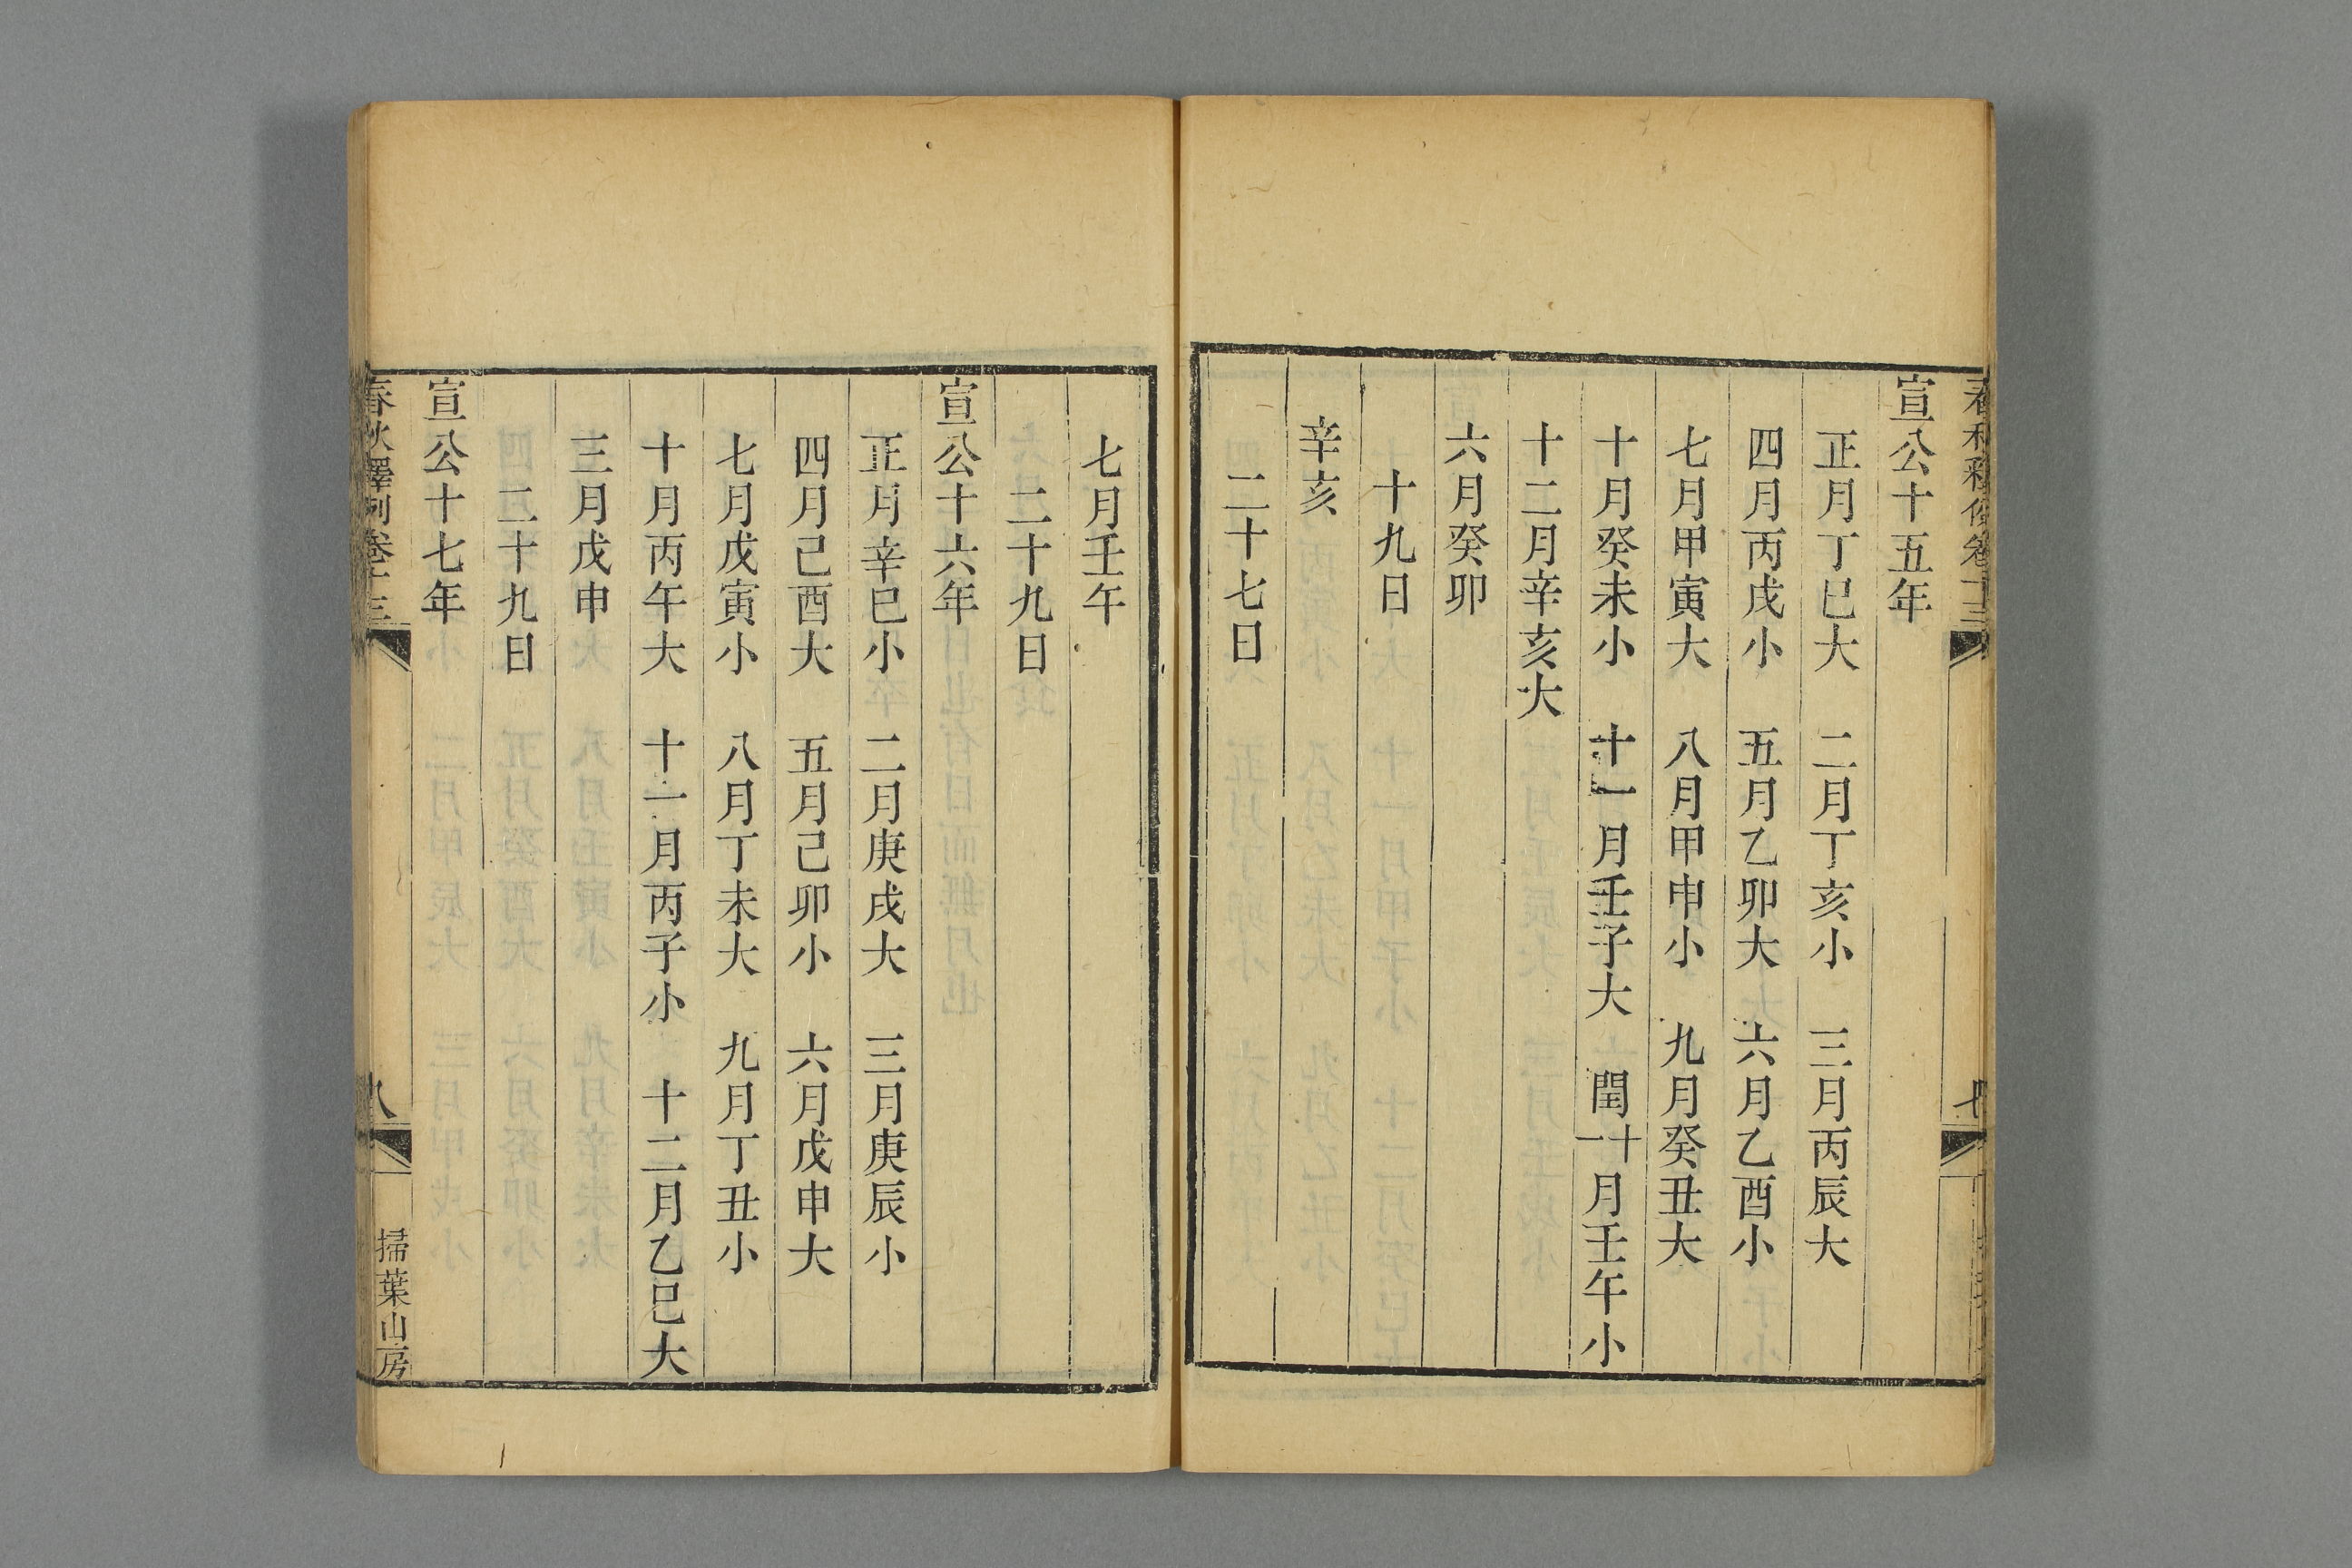 宣公十五年
正月丁巳大　二月丁亥小　三月丙辰大
四月丙戌小　五月乙卯大　六月乙酉小
七月甲寅大　八月甲申小　九月癸丑大
十月癸未小　十一月壬子大　閏十一月壬午小
十二月辛亥大
六月癸卯
十九日
辛亥
二十七日
七月壬午
二十九日
宣公十六年
正月辛巳小　二月庚戌大　三月庚辰小
四月己酉大　五月己卯小　六月戊申大
七月戊寅小　八月丁未大　九月丁丑小
十月丙午大　十一月丙子小　十二月乙巳大
三月戊申
二十九日
宣公十七年
春秋釋例卷十三
八
掃葉山房